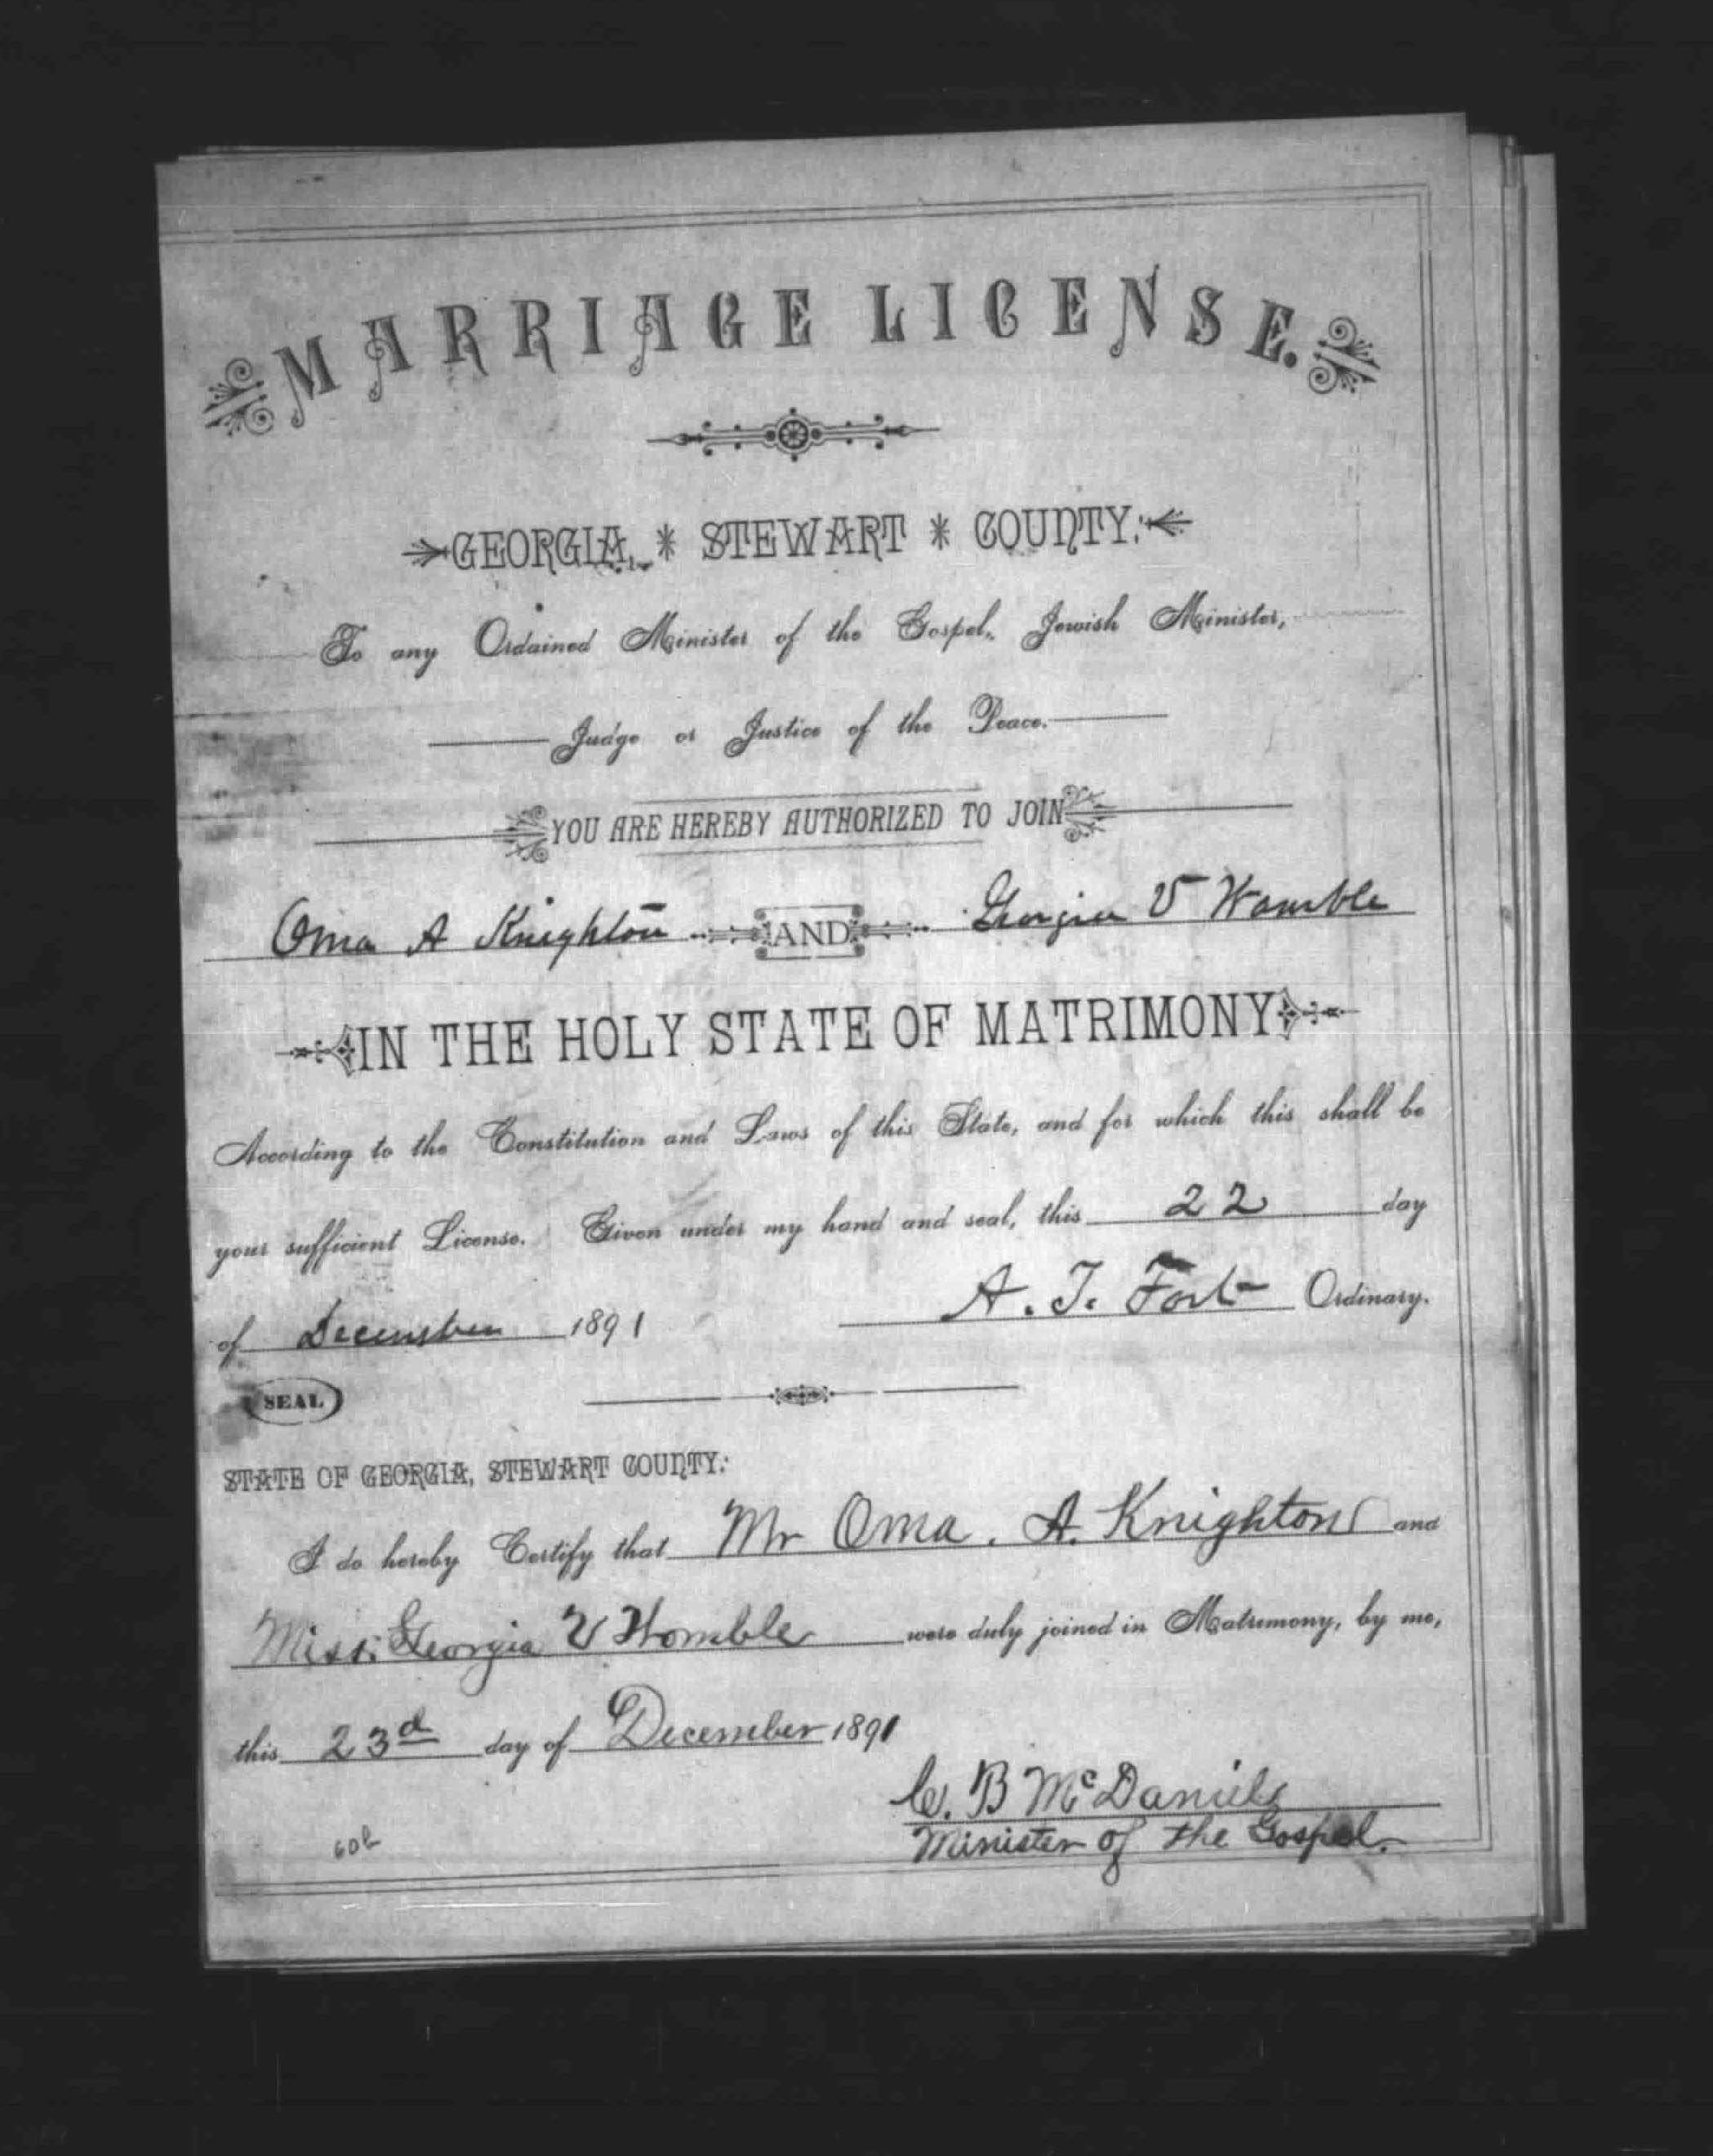 MARRIAGE LICENSE.
GEORGIA, * STEWART * COUNTY:
To any Ordained Minister of the Gospel, Jewish Minister,
Judge or Justice of the Peace.
YOU ARE HEREBY AUTHORIZED TO JOIN
Oma A Knighton AND Georgia V Womble
IN THE HOLY STATE OF MATRIMONY
According to the Constitution and Laws of this State, and for which this shall be
your sufficient License. Given under my hand and seal, this 22 day
of December 1891 A. T. Fort Ordinary.
SEAL
STATE OF GEORGIA, STEWART COUNTY:
I do hereby Certify that Mr Oma. A. Knighton and
Miss. Georgia V Womble were duly joined in Matrimony, by me,
this 23d day of December 1891
C. B McDaniel
Minister of the Gospel.